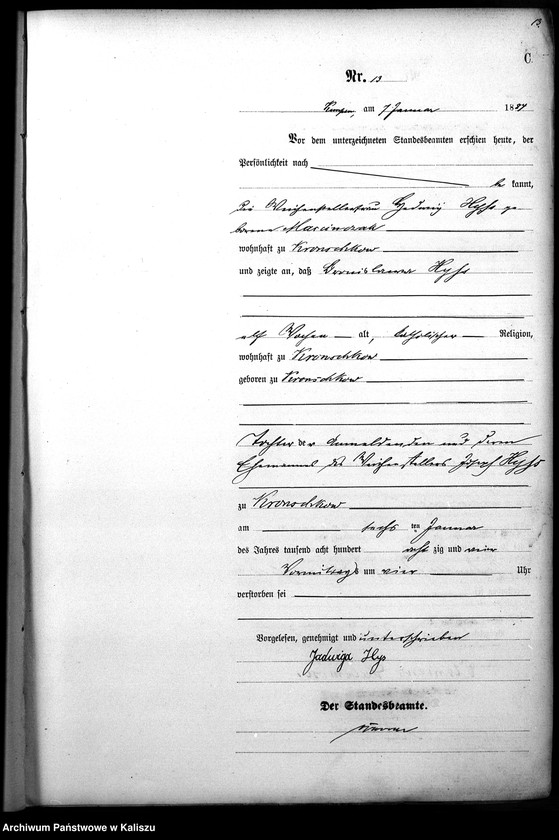 13
C
Nr. 13
Kempen, am 7 Januar 1884
Vor dem unterzeichneten Standesbeamten erschien heute, der
Persönlichkeit nach
be kannt,
die Weichenstellerfrau Hedwig Hyss ge
borene Marciniak
wohnhaft zu Kronschkow
und zeigte an, daß Hyss
Wochen alt, katholischer Religion,
wohnhaft zu Kronschkow
geboren zu Kronschkow
Tochter der Anmeldenden und deren
Ehemannes des Weichenstellers Joseph Hyss
zu Kronschkow
am sechs ten Januar
des Jahres tausend acht hundert acht zig und vier
Vormittags um vier Uhr
verstorben sei
Vorgelesen, genehmigt und unterschrieben
Jadwiga Hys
Der Standesbeamte.
Archiwum Państwowe w Kaliszu